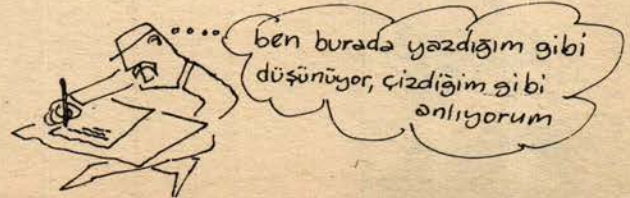 ben burada yazdığım gibi
düşünüyor, çizdiğim gibi
anlıyorum